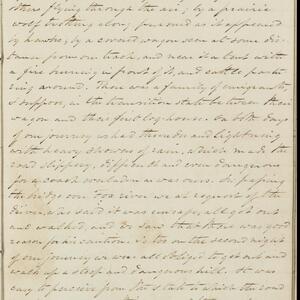 others flying through the air; by a prairie
wolf trotting along, pursued as it appeared
by hawks; by a covered wagon seen at some dis-
tance from our track, and near it a tent with
a fire burning in front of it, and cattle pastu-
ring around. There was a family of emigrants,
I suppose, in the transition state between their
wagon and their future log house. On both days
of our journey we had thunder and lightning
with heavy showers of rain, which made the
road slippery, difficult and even dangerous
for a coach so laden as was ours. In passing
the bridge over Fox river we at request of the
driver, who said it was unsafe, all got out
and walked, and we saw that there was good
reason for his caution. So too on the second night
of our journey we were all obliged to get out and
walk up a steep and dangerous hill. It was
easy to perceive from the state in which the road